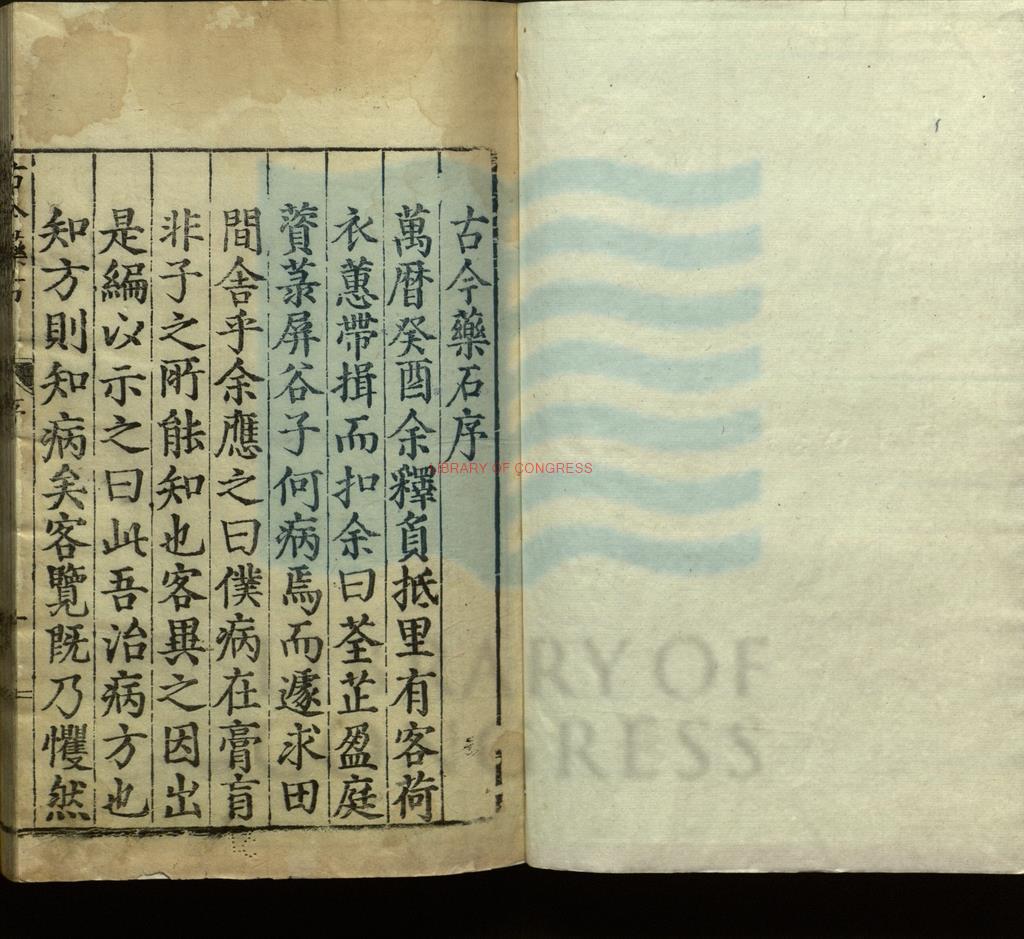 古今藥石序
萬曆癸酉余釋負抵里有客荷
衣蕙帶揖而扣余曰荃芷盈庭
薋菉屏谷子何病焉而遽求田
間舍乎余應之曰僕病在膏肓
非子之所能知也客異之因出
是編以示之曰此吾治病方也
知方則知病矣客覽既乃懼然
古今藥石
序
LIBRARY OF CONGRESS
LIBRARY OF
CONGRESS